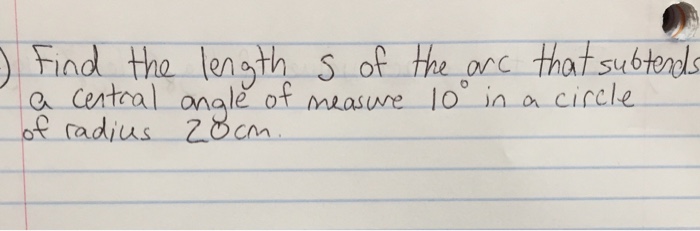 ) Find the length s of the arc that subtends
a central angle of measure 10° in a circle
of radius 20cm.